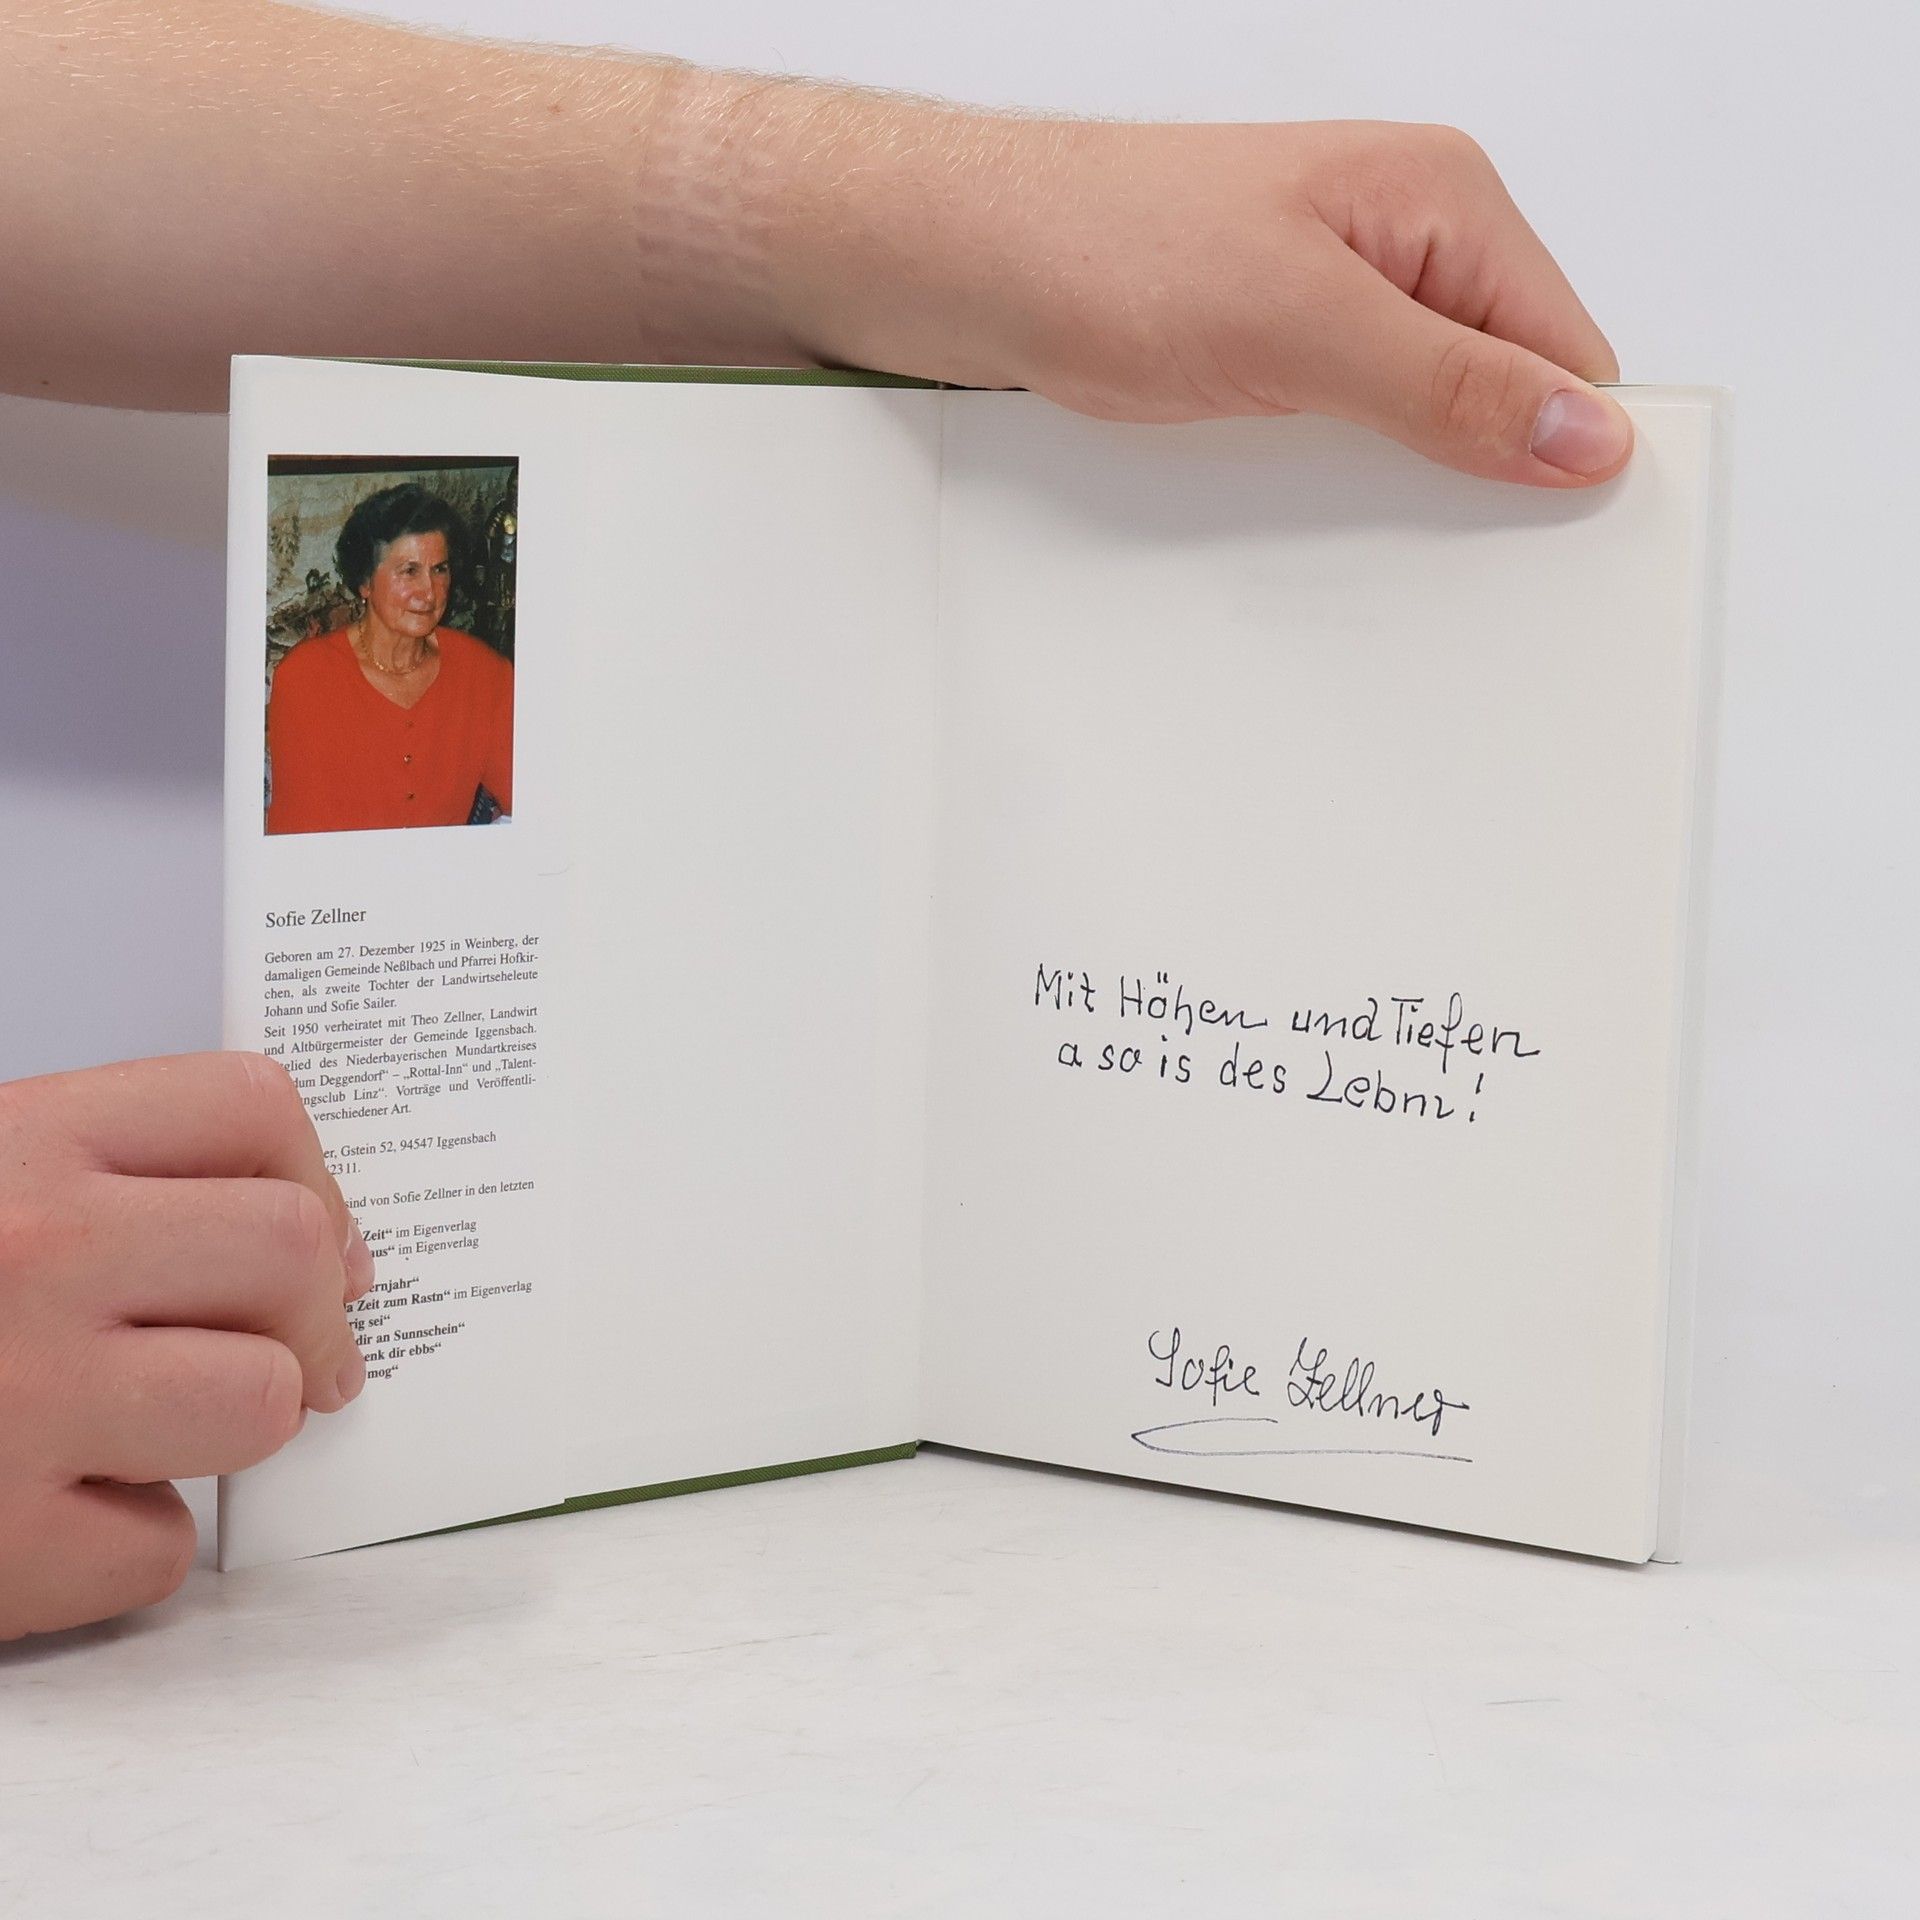 Sofie Zellner
Geboren am 27. Dezember 1925 in Weinberg, der
damaligen Gemeinde Neßlbach und Pfarrei Hofkir-
chen, als zweite Tochter der Landwirtseheleute
Johann und Sofie Sailer.
Seit 1950 verheiratet mit Theo Zellner, Landwirt
und Altbürgermeister der Gemeinde Iggensbach.
glied des Niederbayerischen Mundartkreises
dum Deggendorf“ – „Rottal-Inn“ und „Talent-
ngsclub Linz“. Vorträge und Veröffentli-
verschiedener Art.
er, Gstein 52, 94547 Iggensbach
/2311.
sind von Sofie Zellner in den letzten
n:
Zeit“ im Eigenverlag
aus“ im Eigenverlag
ernjahr“
a Zeit zum Rastn“ im Eigenverlag
rig sei“
dir an Sunnschein“
enk dir ebbs“
mog“
Mit Höhen und Tiefen
a so is des Lebm!
Sofie Zellner